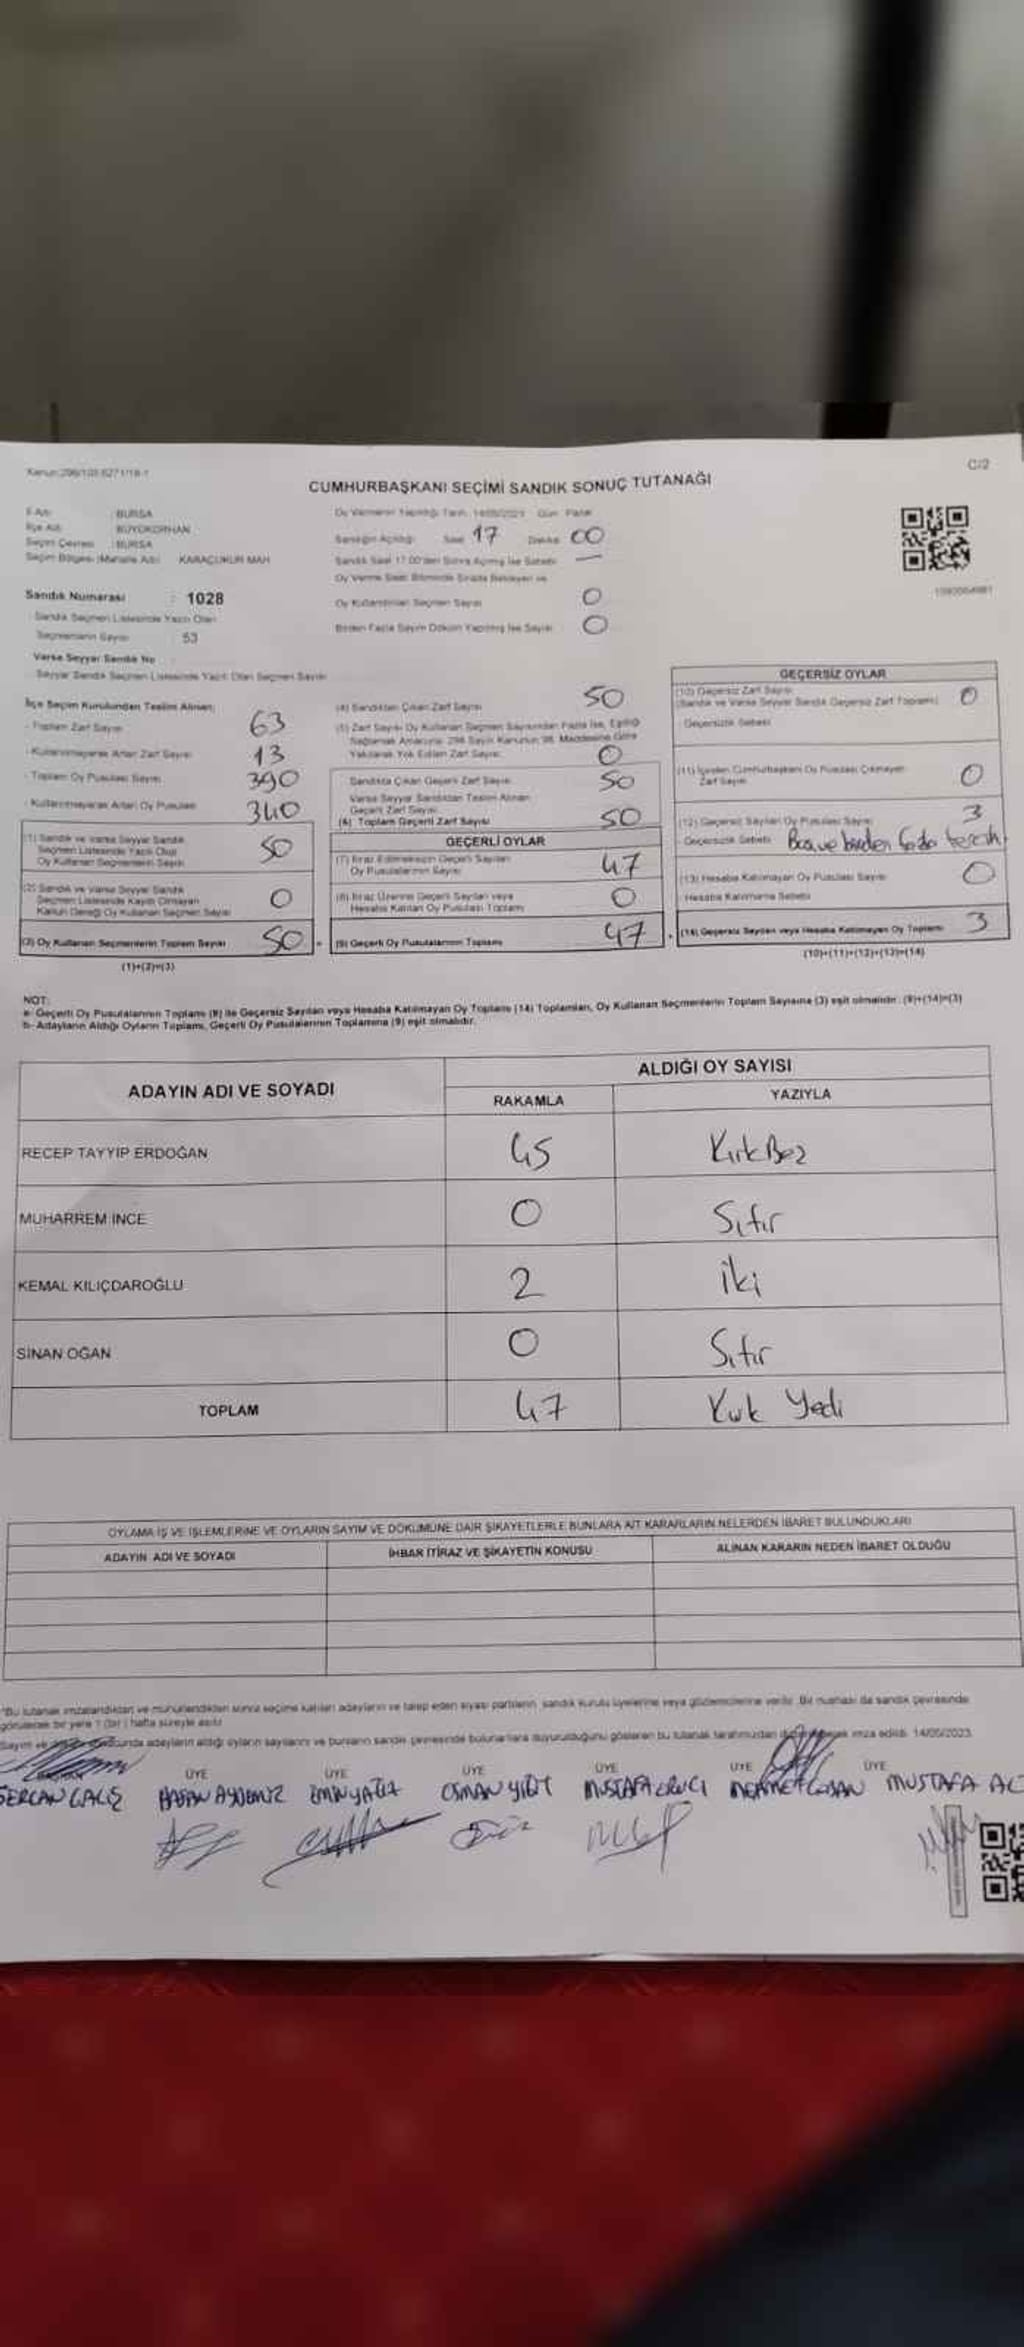 C/2
CUMHURBAŞKANI SEÇİMİ SANDIK SONUÇ TUTANAĞI
İl Adı : BURSA
İlçe Adı : BÜYÜKORHAN
Seçim Çevresi : BURSA
Seçim Bölgesi (Mahalle Adı) KARAÇUKUR MAH
Sandık Numarası : 1028
Sandık Seçmen Listesinde Yazılı Olan
Seçmenlerin Sayısı 53
Varsa Seyyar Sandık No
Seyyar Sandık Seçmen Listesinde Yazılı Olan Seçmen Sayısı
Oy Vermenin Yapıldığı Tarih 14/05/2023 Gün Pazar
Sandığın Açıldığı Saat 17 Dakika 00
Sandık Saat 17.00'den Sonra Açılmış İse Sebebi —
Oy Verme Saati Bitiminde Sırada Bekleyen ve
Oy Kullandırılan Seçmen Sayısı 0
Birden Fazla Sayım Döküm Yapılmış İse Sayısı 0
İlçe Seçim Kurulundan Teslim Alınan;
- Toplam Zarf Sayısı 63
- Kullanılmayarak Artan Zarf Sayısı 13
- Toplam Oy Pusulası Sayısı 390
- Kullanılmayarak Artan Oy Pusulası 340
(1) Sandık ve Varsa Seyyar Sandık
Seçmen Listesinde Yazılı Olup
Oy Kullanan Seçmenlerin Sayısı 50
(2) Sandık ve Varsa Seyyar Sandık
Seçmen Listesinde Kayıtlı Olmayan
Kanun Gereği Oy Kullanan Seçmen Sayısı 0
(3) Oy Kullanan Seçmenlerin Toplam Sayısı 50
(1)+(2)=(3)
(4) Sandıktan Çıkan Zarf Sayısı 50
(5) Zarf Sayısı Oy Kullanan Seçmen Sayısından Fazla İse, Eşitliği
Sağlamak Amacıyla 298 Sayılı Kanunun 98. Maddesine Göre
Yakılarak Yok Edilen Zarf Sayısı 0
Sandıkta Çıkan Geçerli Zarf Sayısı 50
Varsa Seyyar Sandıktan Teslim Alınan
Geçerli Zarf Sayısı
(6) Toplam Geçerli Zarf Sayısı 50
GEÇERLİ OYLAR
(7) İtiraz Edilmeksizin Geçerli Sayılan
Oy Pusulalarının Sayısı 47
(8) İtiraz Üzerine Geçerli Sayılan veya
Hesaba Katılan Oy Pusulası Toplamı 0
(9) Geçerli Oy Pusulalarının Toplamı 47
GEÇERSİZ OYLAR
(10) Geçersiz Zarf Sayısı
(Sandık ve Varsa Seyyar Sandık Geçersiz Zarf Toplamı) 0
Geçersizlik Sebebi
(11) İçinden Cumhurbaşkanı Oy Pusulası Çıkmayan
Zarf Sayısı 0
(12) Geçersiz Sayılan Oy Pusulası Sayısı 3
Geçersizlik Sebebi Boş ve birden fazla tercih
(13) Hesaba Katılmayan Oy Pusulası Sayısı 0
Hesaba Katılmama Sebebi
(14) Geçersiz Sayılan veya Hesaba Katılmayan Oy Toplamı 3
(10)+(11)+(12)+(13)=(14)
NOT:
a- Geçerli Oy Pusulalarının Toplamı (9) ile Geçersiz Sayılan veya Hesaba Katılmayan Oy Toplamı (14) Toplamları, Oy Kullanan Seçmenlerin Toplam Sayısına (3) eşit olmalıdır. (9)+(14)=(3)
b- Adayların Aldığı Oyların Toplamı, Geçerli Oy Pusulalarının Toplamına (9) eşit olmalıdır.
ADAYIN ADI VE SOYADI ALDIĞI OY SAYISI
RAKAMLA YAZIYLA
RECEP TAYYİP ERDOĞAN 45 Kırk Beş
MUHARREM İNCE 0 Sıfır
KEMAL KILIÇDAROĞLU 2 iki
SİNAN OĞAN 0 Sıfır
TOPLAM 47 Kırk Yedi
OYLAMA İŞ VE İŞLEMLERİNE VE OYLARIN SAYIM VE DÖKÜMÜNE DAİR ŞİKAYETLERLE BUNLARA AİT KARARLARIN NELERDEN İBARET BULUNDUKLARI
ADAYIN ADI VE SOYADI İHBAR İTİRAZ VE ŞİKAYETİN KONUSU ALINAN KARARIN NEDEN İBARET OLDUĞU
"Bu tutanak imzalandıktan ve mühürlendikten sonra seçime katılan adayların ve talep eden siyasi partilerin sandık kurulu üyelerine veya gözlemcilerine verilir. Bir nüshası da sandık çevresinde
görülecek bir yere 1 (bir) hafta süreyle asılır.
adayların aldığı oyların sayılarını ve bunların sandık çevresinde bulunanlara duyurulduğunu gösteren bu tutanak tarafımızdan imza edildi. 14/05/2023
ÜYE ÜYE ÜYE ÜYE ÜYE ÜYE
SERCAN EMİN OSMAN YİĞİT MUSTAFA MEHMET MUSTAFA